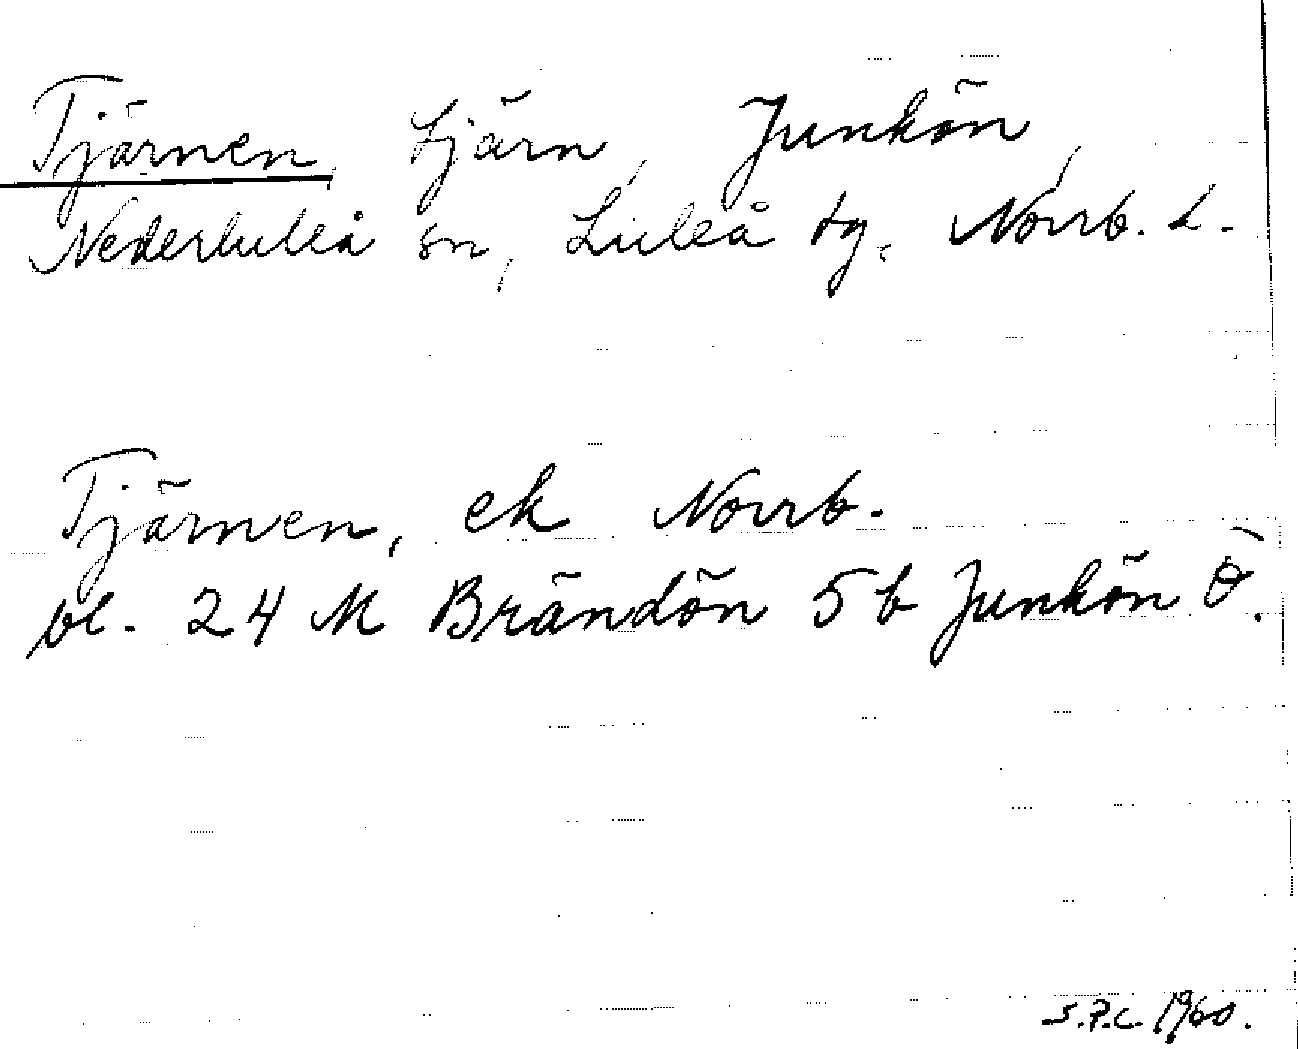 Tjärnen, tjärn, Junkön,
Nederluleå sn, Luleå tg. Norrb. L.
Tjärnen, ek Norrb.
bl. 24 M Brändön 5 b Junkön Ö.
S.P.C. 1960.